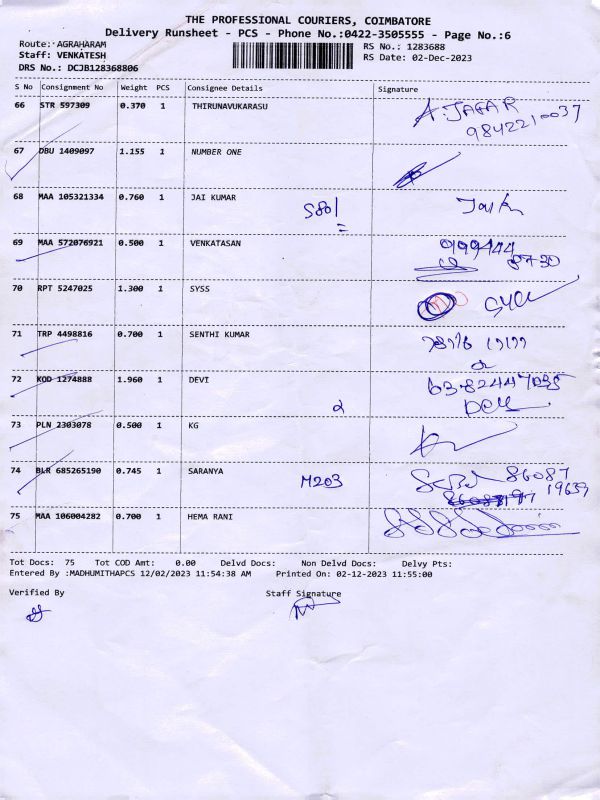 THE PROFESSIONAL COURIERS, COIMBATORE
Delivery Runsheet - PCS - Phone No.:0422-3505555 - Page No.:6
Route: AGRAHARAM RS No.: 1283688
Staff: VENKATESH RS Date: 02-Dec-2023
DRS No.: DCJB128368806
S No Consignment No Weight PCS Consignee Details Signature
66 STR 597309 0.370 1 THIRUNAVUKARASU A. JAFAR
9842210037
67 DBU 1409097 1.155 1 NUMBER ONE
68 MAA 105321334 0.760 1 JAI KUMAR S801
69 MAA 572076921 0.500 1 VENKATASAN
70 RPT 5247025 1.300 1 SYSS
71 TRP 4498816 0.700 1 SENTHI KUMAR
72 KOD 1274888 1.960 1 DEVI
73 PLN 2303078 0.500 1 KG
74 BLR 685265190 0.745 1 SARANYA M203 86087
19639
75 MAA 106004282 0.700 1 HEMA RANI
Tot Docs: 75 Tot COD Amt: 0.00 Delvd Docs: Non Delvd Docs: Delvy Pts:
Entered By :MADHUMITHAPCS 12/02/2023 11:54:38 AM Printed On: 02-12-2023 11:55:00
Verified By Staff Signature